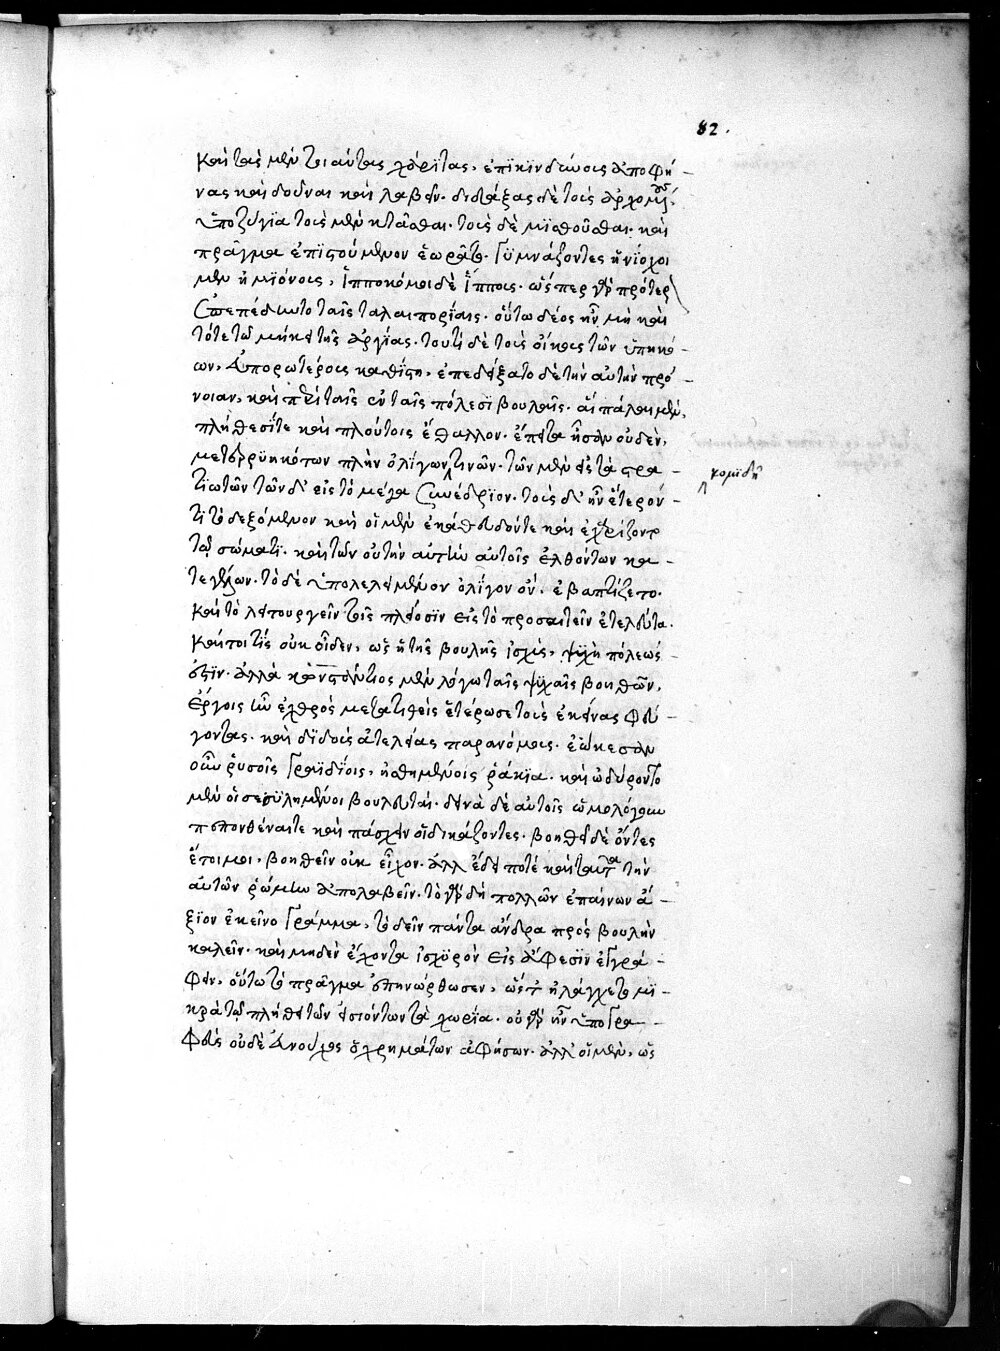 82.
καὶ τὰς μὲν τοιαύτας χάριτας, ἐπικινδύνους ἀποφή-
νας καὶ δοῦναι καὶ λαβεῖν. διδάξας δὲ τοὺς ἀρχομένους,
ὑποζύγια τοὺς μὲν κτᾶσθαι. τοὺς δὲ μισθοῦσθαι. καὶ
πρᾶγμα ἀπιστούμενον ἑωρᾶτο. γυμνάζοντες ἡνίοχοι
μὲν ἡμιόνους, ἱπποκόμοι δὲ ἵππους. ὥσπερ γὰρ πρότερον
ἀπεπέδυντο ταῖς ταλαιπωρίαις. οὕτω δέος ἦν μὴ καὶ
τότε τῷ μήκει τῆς ἀργίας. τουτὶ δὲ τοὺς οἴκους τῶν ὑπηκό-
ων, εὐπορωτέρους καθίστη. ἐπεδείξατο δὲ τὴν αὐτὴν πρό-
νοιαν, καὶ περὶ ταῖς ἐν ταῖς πόλεσι βουλαῖς. αἳ πάλαι μὲν,
πλήθεσί τε καὶ πλούτοις ἔθαλλον. ἔπειτα ἦσαν οὐδὲν,
μετερρυηκότων πλὴν ὀλίγων τινῶν. τῶν μὲν εἰς τὰ στρα-
κομιδῇ
τιωτῶν τῶν δ' εἰς τὸ μέγα συνέδριον. τοὺς δ' ἦν ἕτερόν
τι τὸ δεξόμενον καὶ οἱ μὲν ἐκάθευδόν τε καὶ ἐχαρίζοντο
τῷ σώματι. καὶ τῶν οὐ τὴν αὐτὴν αὐτοῖς ἐλθόντων κα-
τεγέλων. τὸ δὲ ὑπολελειμμένον ὀλίγον ὂν. ἐβαπτίζετο.
καὶ τὸ λειτουργεῖν τοῖς πλείοσιν εἰς τὸ προσαιτεῖν ἐτελεύτα.
καίτοι τίς οὐκ οἶδεν, ὡς ἡ τῆς βουλῆς ἰσχὺς, ψυχὴ πόλεώς
ἐστιν. ἀλλὰ κωνστάντιος μὲν λόγῳ ταῖς ψυχαῖς βοηθῶν,
ἔργοις ἦν ἐχθρὸς μετατιθεὶς ἑτέρωσε τοὺς ἐκείνας φεύ-
γοντας. καὶ διδοὺς ἀτελείας παρανόμους. ἐῴκεσαν
οὖν ῥυσοῖς γραϊδίοις, ἠσθημένοις ῥάκια. καὶ ὠδύροντο
μὲν οἱ σεσυλημένοι βουλευταί. δεινὰ δὲ αὐτοῖς ὡμολόγουν
πεπονθέναι τε καὶ πάσχειν οἱ δικάζοντες. βοηθεῖ δὲ ὄντες
ἕτοιμοι, βοηθεῖν οὐκ εἶχον. ἀλλ' ἔδει ποτὲ καὶ ταῦτα τὴν
αὑτῶν ῥώμην ἀπολαβεῖν. τὸ γὰρ δὴ πολλῶν ἐπαίνων ἄ-
ξιον ἐκεῖνο γράμμα, τὸ δεῖν πάντα ἄνδρα πρὸς βουλὴν
καλεῖν. καὶ μηδὲν ἔχοντα ἰσχυρὸν εἰς ἄφεσιν ἐγγρά-
φειν, οὕτω τὸ πρᾶγμα ἐπηνώρθωσεν, ὥστ' ἠλέγχετο μι-
κρὰ τῷ πλήθει τῶν εἰσιόντων τὰ χωρία. οὐ γὰρ ἦν ὑπογρα-
φεὺς οὐδὲ εὐνοῦχος ὁ χρημάτων ἀφήσων. ἀλλ' οἱ μὲν, ὡς